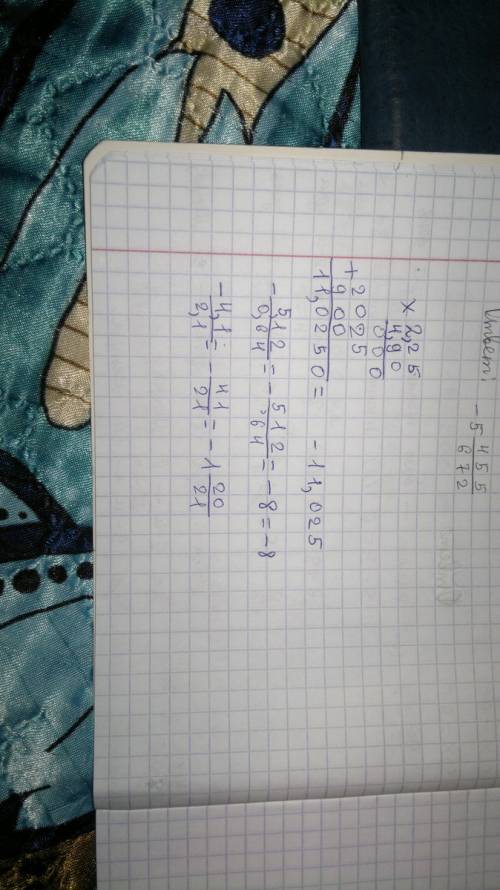 Ответ: -5 455/672
× 2,25
4,90
000
+ 2025
900
11,0250 = -11,025
- 5,12/0,64 = - 512/64 = -8 = -8
- 4,1/2,1 = - 41/21 = -1 20/21